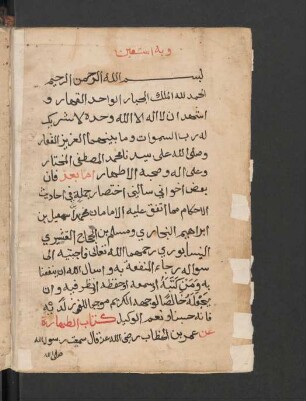 وبه استعين
بسم الله الرحمن الرحيم
الحمد لله الملك الجبار الواحد القهار و
اشهد ان لا اله الا الله وحده لا شريك
له رب السموات وما بينهما العزيز الغفار
وصلى الله على سيدنا محمد المصطفى المختار
وعلى اله وصحبه الاطهار اما بعد فان
بعض اخواني سالني اختصار جملة في احاديث
الاحكام مما اتفق عليه الامامان محمد بن اسمعيل بن
ابراهيم البخاري ومسلم بن الحجاج القشيري
النيسابوري رحمهما الله تعالى فاجبته الى
سواله رجاء المنفعة به واسال الله ان ينفعنا
به ومن كتبه او سمعه او حفظه او نظر فيه وان
يجعله خالصا لوجهه الكريم موجبا للفوز لديه
فانه حسبنا ونعم الوكيل كتاب الطهارة
عن عمر بن الخطاب رضي الله عنه قال سمعت رسول الله
صلى الله